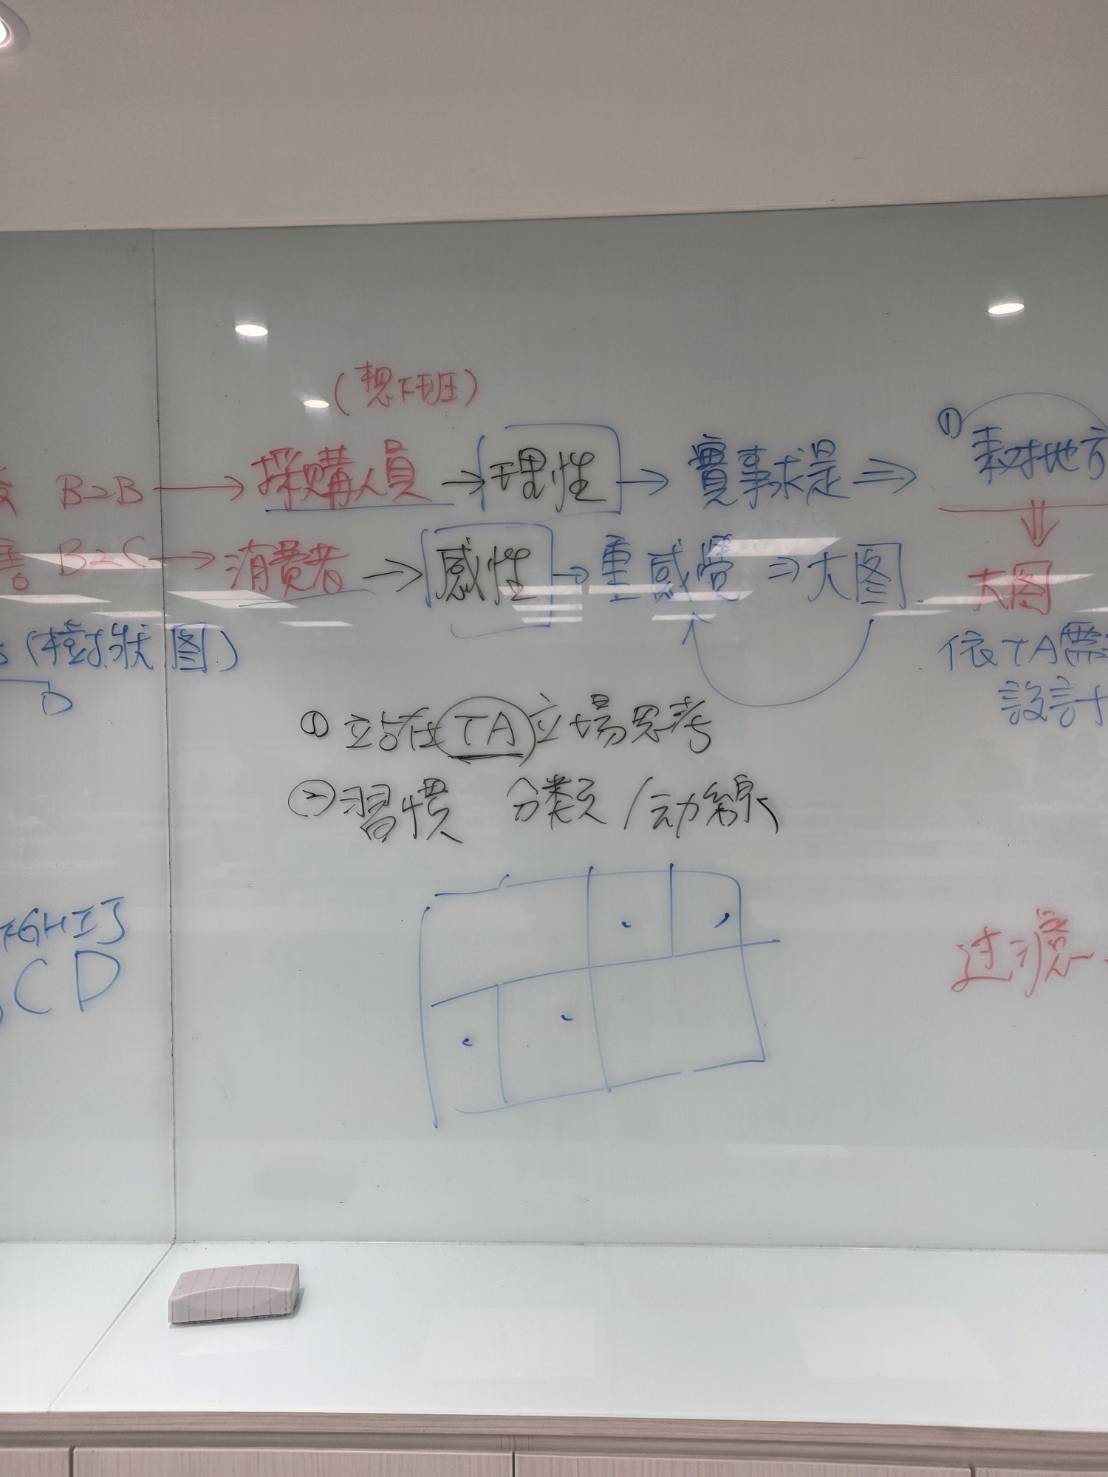 (想下班)
B2B → 採購人員 → 理性 → 實事求是 ⇒ ① 來對地方
B2C → 消費者 → 感性 → 重感覺 ⇒ 大图 大图
(樹狀图) 依TA需
D 設計
① 站在TA立場思考
② 習慣 分類 / 动線
FGHIJ
CD
过濾